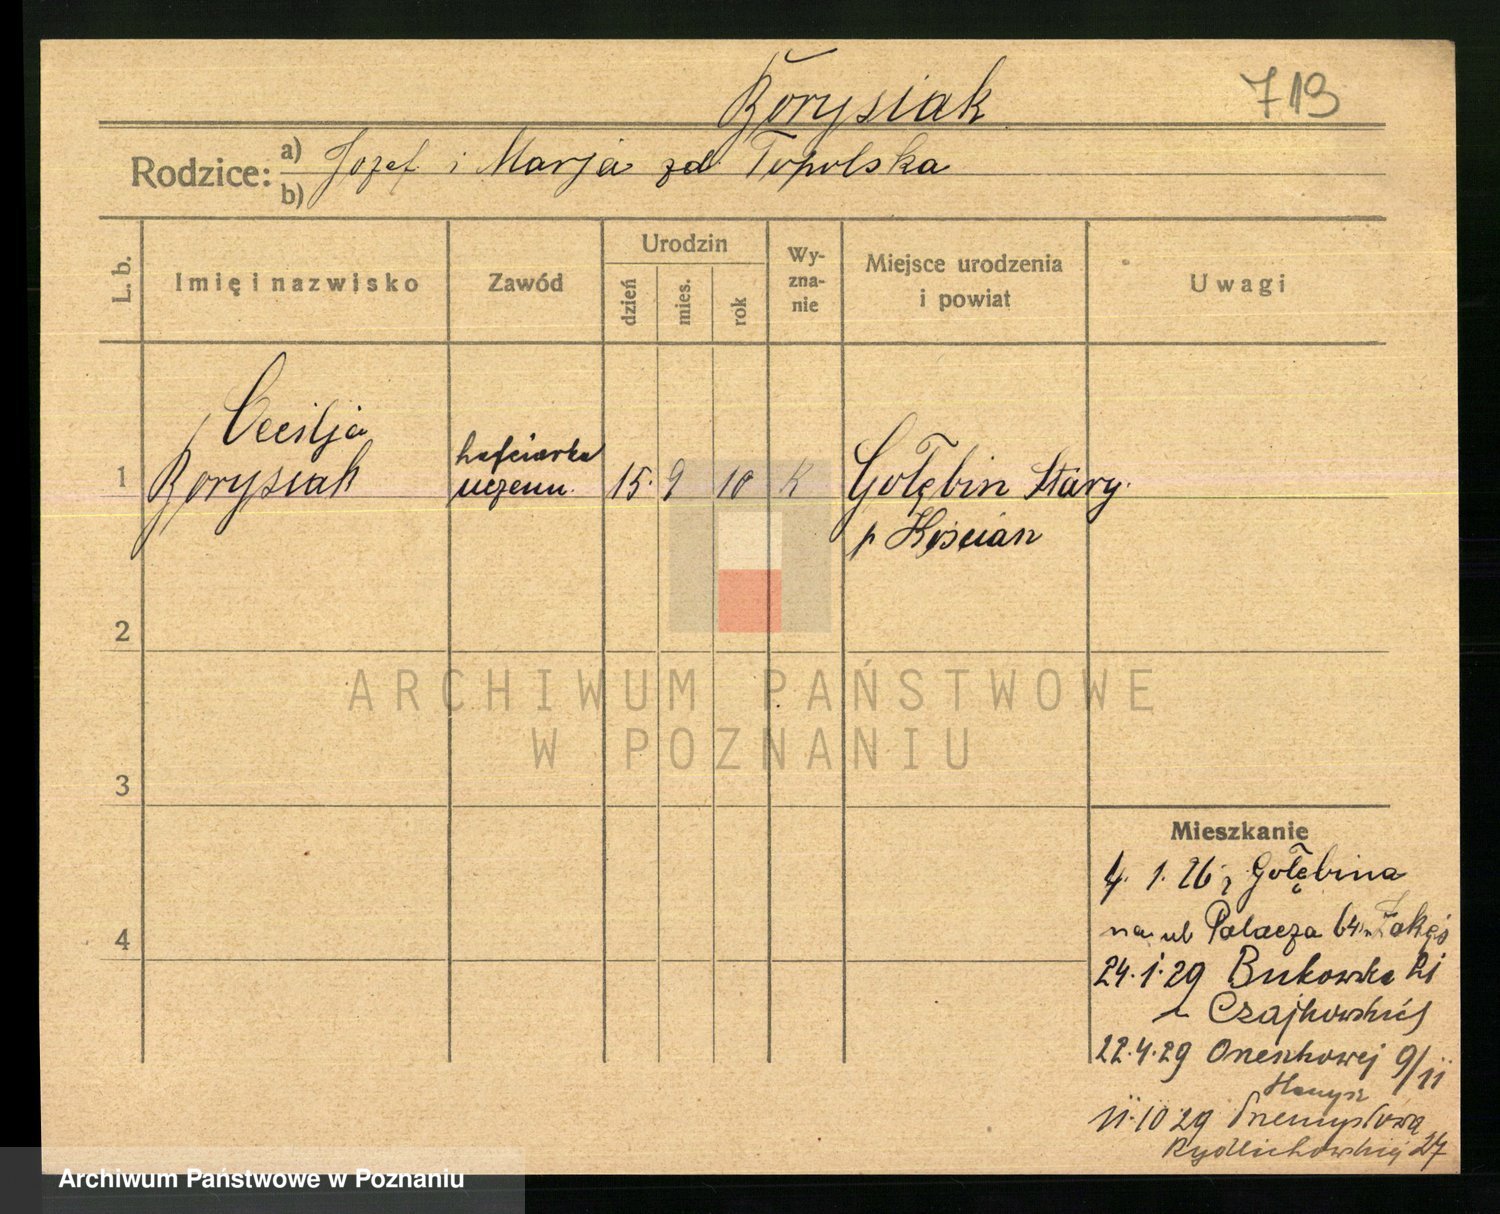 Borysiak
713
Rodzice: a) Jozef i Marja zd Topolska
b)
L. b.
Imię i nazwisko
Zawód
Urodzin
dzień
mies.
rok
Wy-
zna-
nie
Miejsce urodzenia
i powiat
Uwagi
1
Cecilja
Borysiak
hafciarka
uczenn.
15. 9 10 K
Gołębin Stary.
p Kościan
2
3
4
Mieszkanie
4. 1. 26 z Gołębina
na ul Palacza 64
24.1.29 Bukowska 21
Czajkowskiej
22.4.29 9/11
11.10 29
27
ARCHIWUM PAŃSTWOWE
W POZNANIU
Archiwum Państwowe w Poznaniu